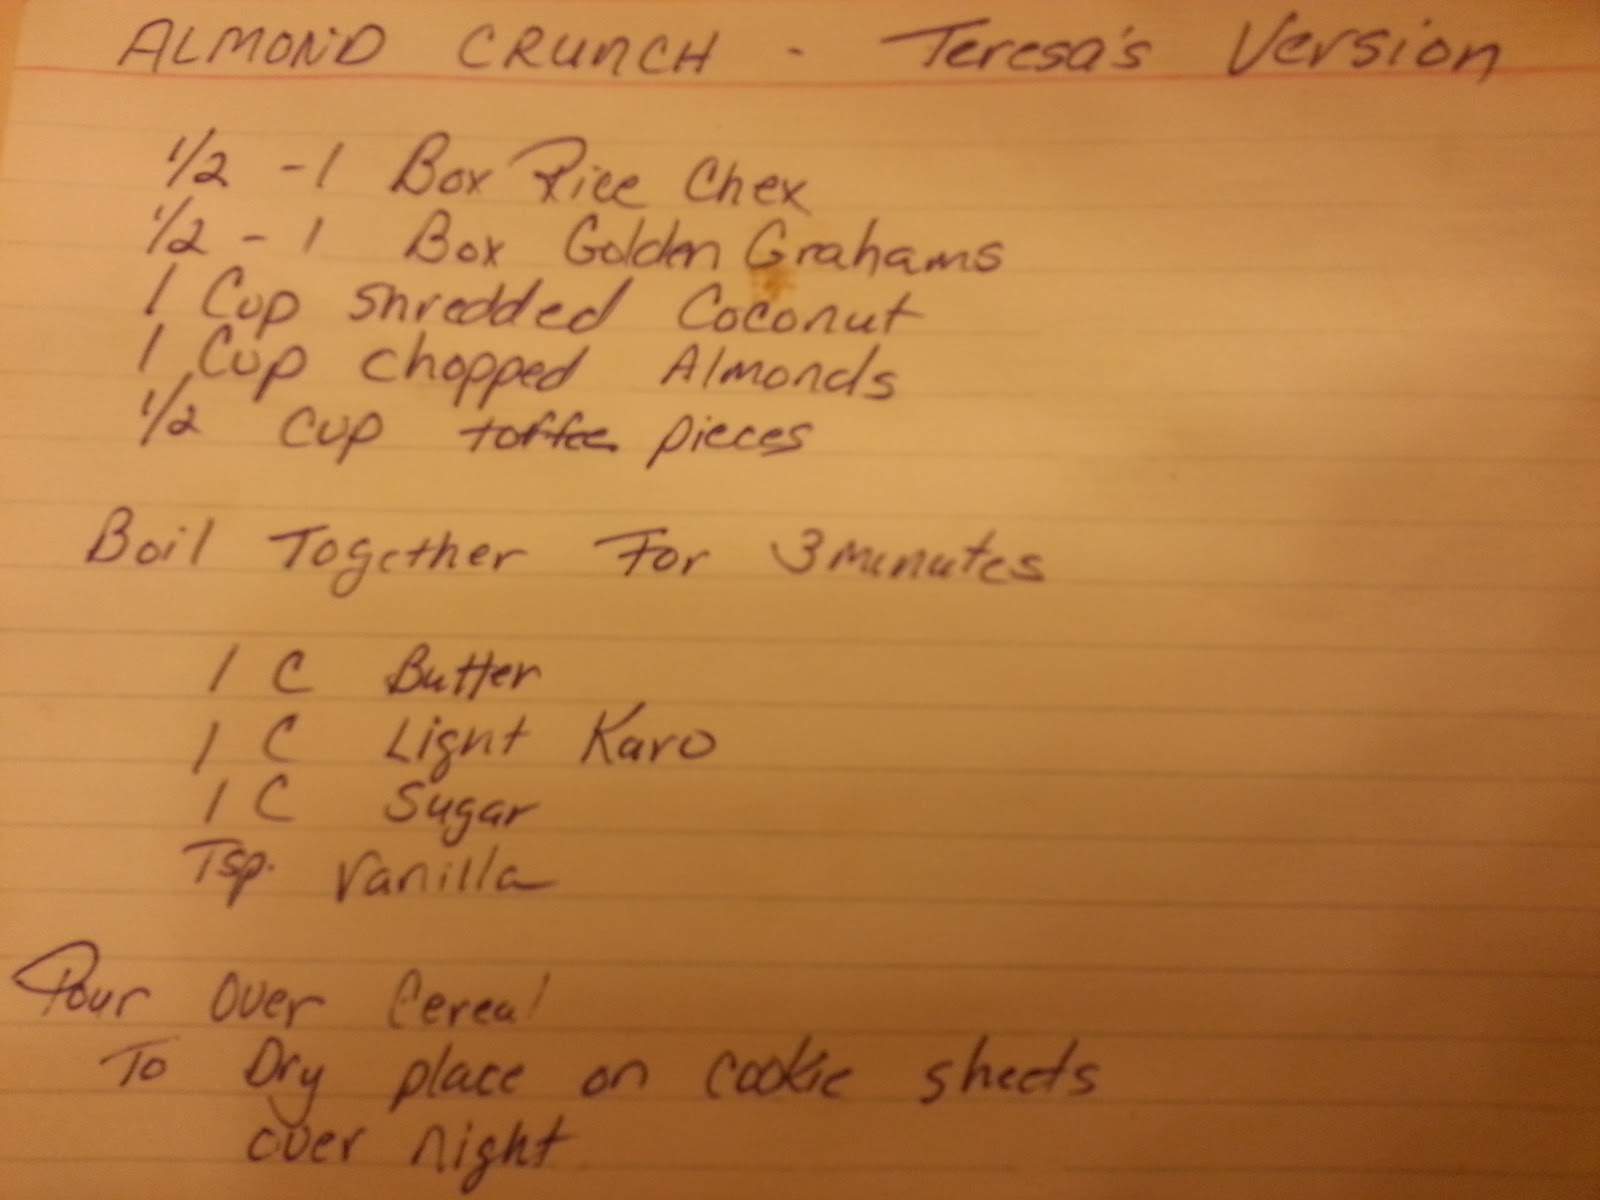 ALMOND CRUNCH - Teresa's Version
1/2 - 1 Box Rice Chex
1/2 - 1 Box Golden Grahams
1 Cup shredded Coconut
1 Cup chopped Almonds
1/2 cup toffee pieces
Boil Together For 3 minutes
1 C Butter
1 C Light Karo
1 C Sugar
Tsp. Vanilla
Pour over Cereal
To Dry place on cookie sheets
over night